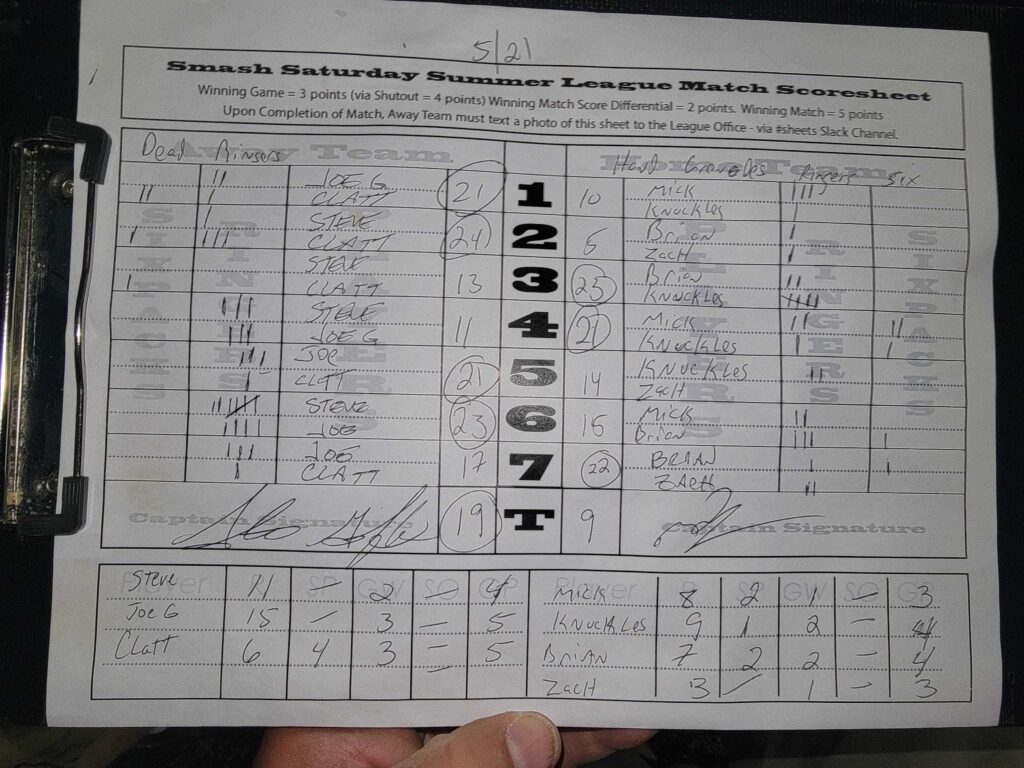 5/21
Smash Saturday Summer League Match Scoresheet
Winning Game = 3 points (via Shutout = 4 points) Winning Match Score Differential = 2 points. Winning Match = 5 points
Upon Completion of Match, Away Team must text a photo of this sheet to the League Office - via #sheets Slack Channel.
Away Team Home Team
Dead Ringers Ringers Six
SIXPACKS RINGERS PLAYERS PLAYERS RINGERS SIXPACKS
JOE G 21 1 10 Mick
CLATT Knuckles
STEVE 24 2 Brian
CLATT Zach
STEVE 13 3 23 Brian
CLATT Knuckles
STEVE 11 4 21 Mick
JOE G Knuckles
JOE 21 5 14 Knuckles
CLATT Zach
STEVE 23 6 16 Mick
JOE Brian
JOE 17 7 22 BRIAN
CLATT ZACH
Captain Signature 19 T 9 Captain Signature
Player R SP GW SO GP Player R SP GW SO GP
Steve 11 - 2 - 4 Mick 8 2 1 - 3
Joe G 15 - 3 - 5 Knuckles 9 1 2 - 4
Clatt 6 4 3 - 5 BRIAN 7 2 2 - 4
Zach 3 - 1 - 3